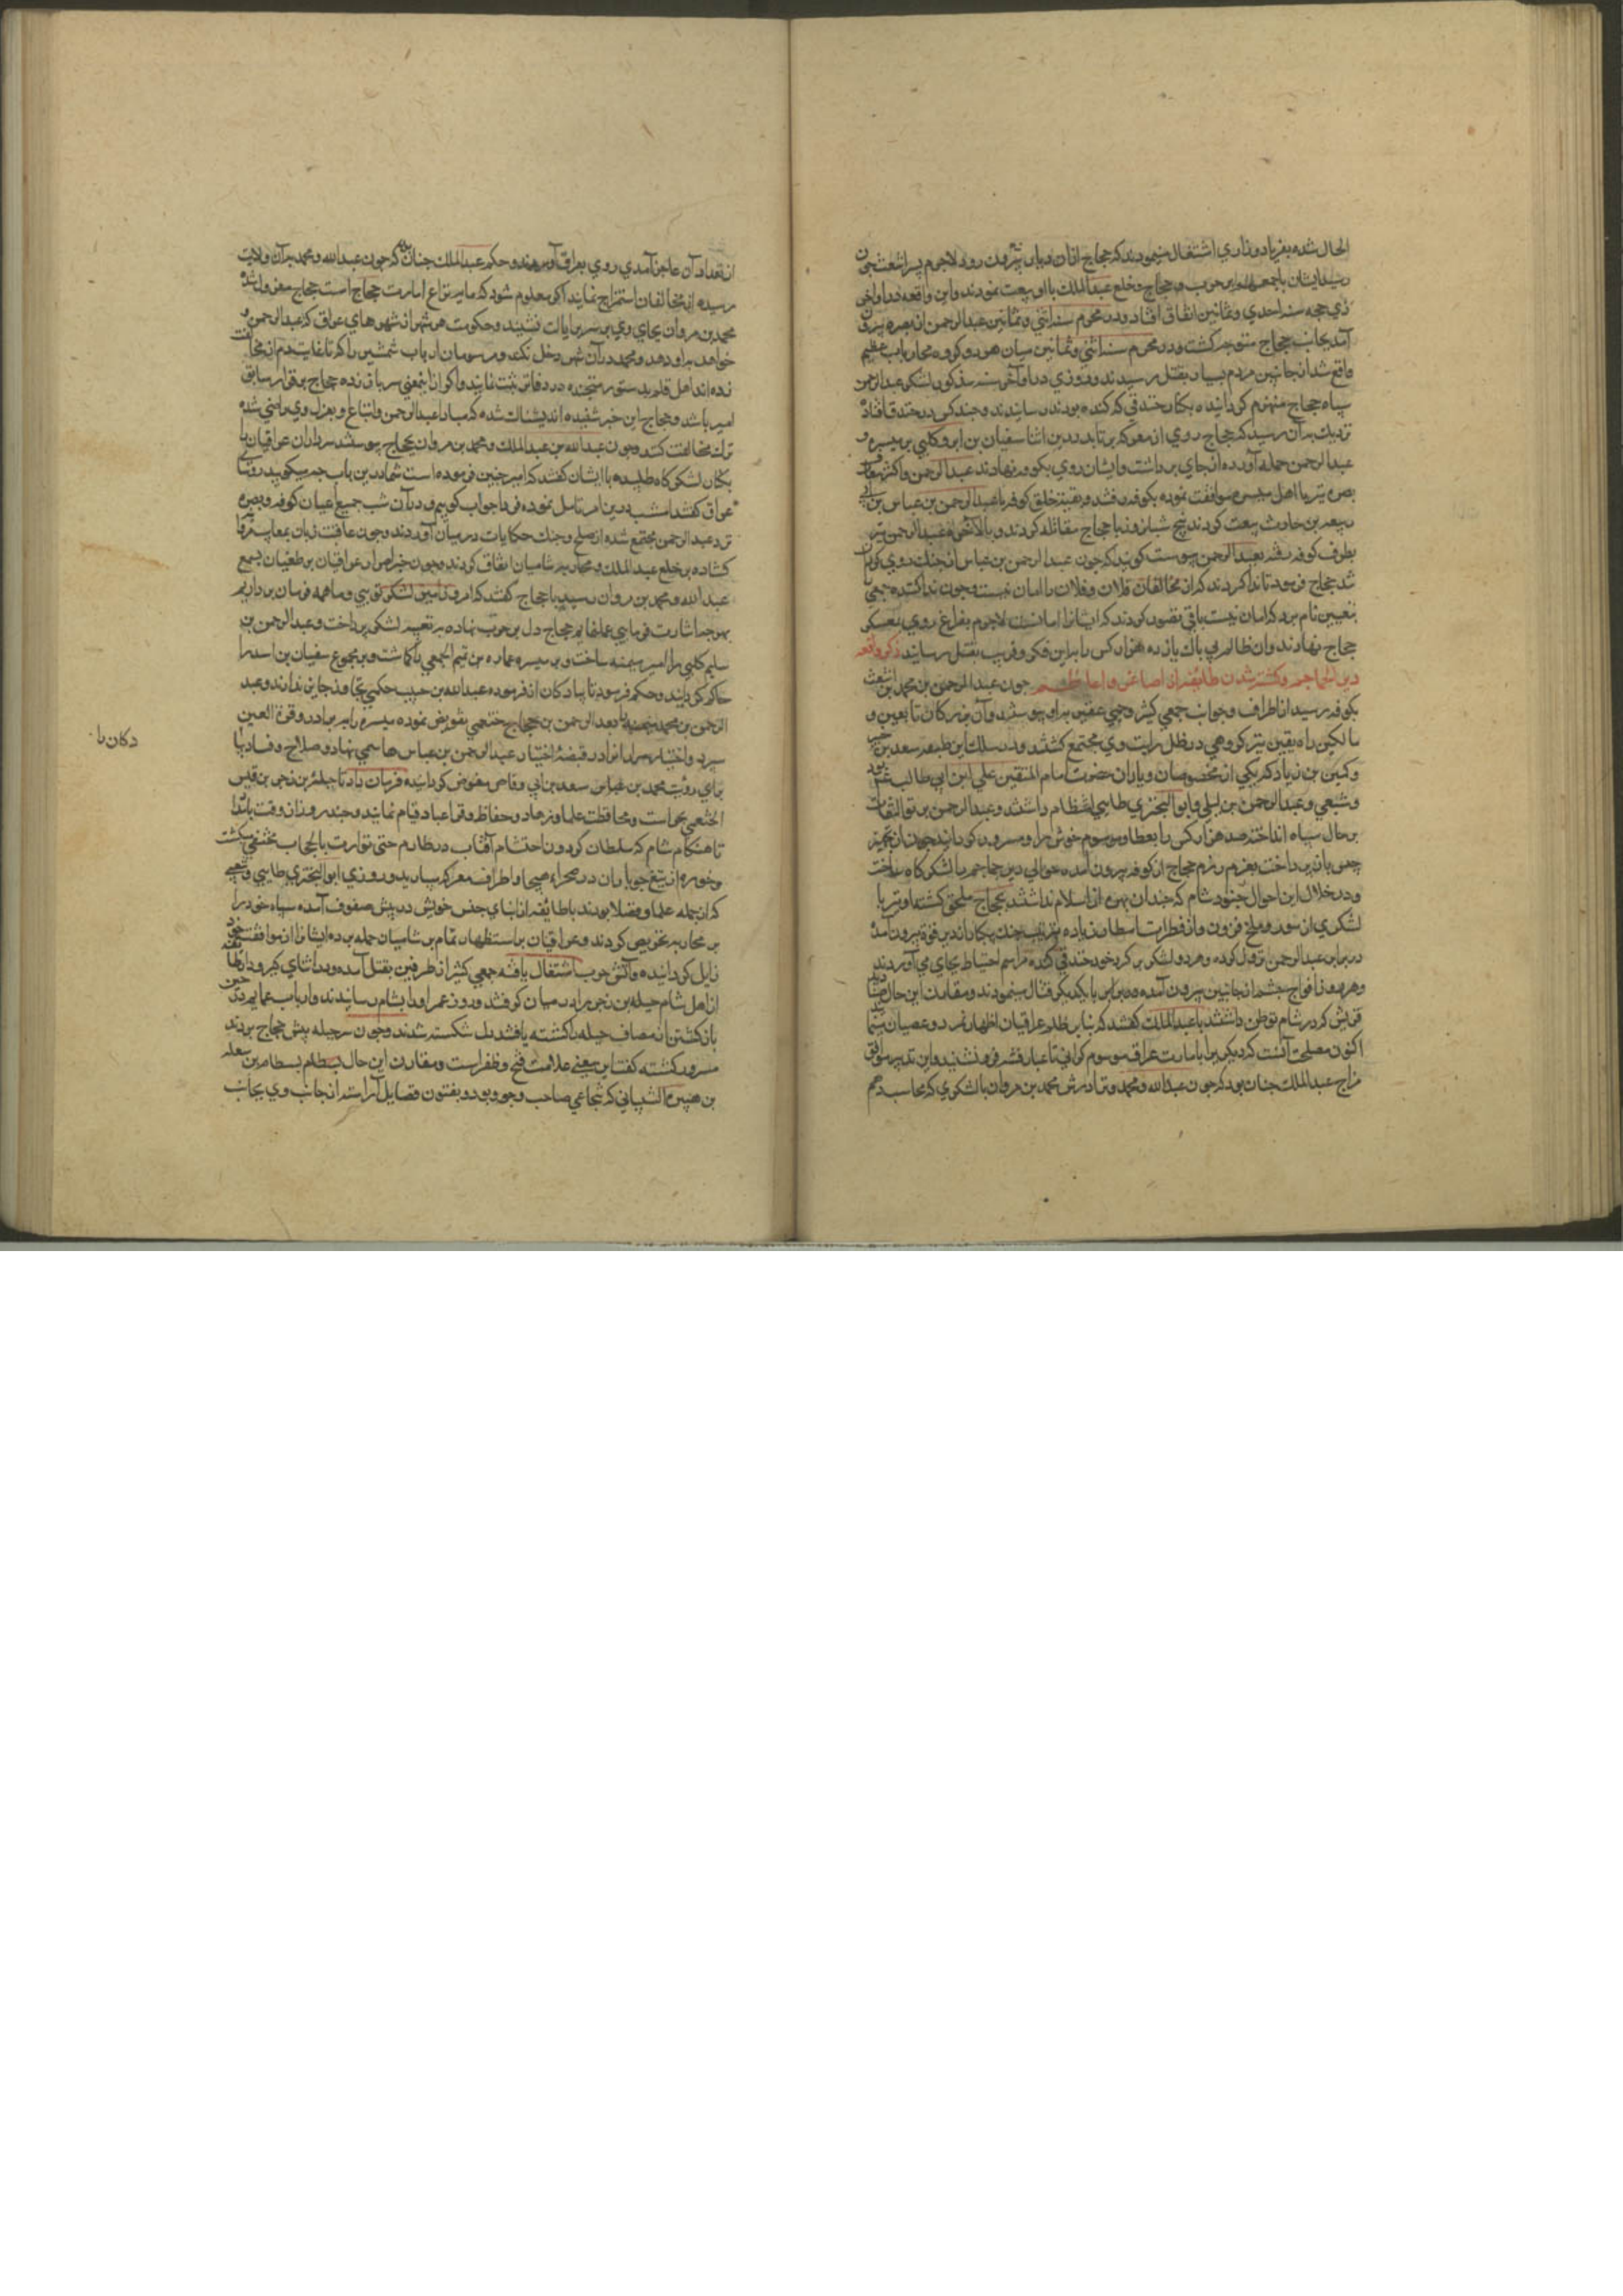 الحال شده بفریاد و زاری اشتغال مینمودند که حجاج ازان دیار بیرون رود لاجرم پسر اشعث چون
رسید ایشان باجمعهم بر حرب حجاج و خلع عبدالملک با او بیعت نمودند و این واقعه در اواخر
ذی حجه سنه احدی و ثمانین اتفاق افتاد و در محرم سنه اثنی و ثمانین عبدالرحمن از بصره بیرون
آمد بجانب حجاج متوجه کشت و در محرم سنه اثنی و ثمانین میان هر دو کروه محاربات عظیم
واقع شد از جانبین مردم بسیار بقتل رسیدند و روزی در اواخر سنه مذکور لشکر عبدالرحمن
سپاه حجاج منهزم کردانیده بکنار خندقی که کنده بودند رسانیدند و چند کس در خندق افتاده
نزدیک بدان رسید که حجاج روی از معرکه برتابد درین اثنا سفیان بن ابرد کلبی بر میسره
عبدالرحمن حمله آورده از جای برداشت و ایشان روی بکوفه نهادند عبدالرحمن و اکثر
بصره نیز با اهل میسره موافقت نموده بکوفه رفتند و بقیه خلق کوفه با عبدالرحمن بن عباس بن
ربیعه بن حارث بیعت کردند پنج شبانروز با حجاج مقاتله کردند و بالاخره عبدالرحمن نیز
بطرف کوفه رفته بعبدالرحمن پیوست کویند که چون عبدالرحمن بن عباس از جنک روی کردان
شد حجاج فرمود تا ندا کردند که از مخالفان فلان و فلان را امان نیست و چون ندا کننده جمعی را
بتعیین نام برد که امان نیست باقی تصور کردند که ایشانرا امانست لاجرم بفراغ روی بعسکر
حجاج نهادند وان ظالم بی باک یازده هزار کس را بدین فکر و فریب بقتل رسانید ذکر واقعه
دیر الجماجم و کشته شدن طایفه از اصاغر و اعاظم چون عبدالرحمن بن محمد بن اشعث
بکوفه رسید از اطراف و جوانب جمعی کثیر و جمی غفیر بدو پیوستند و آن بزرکان تابعین و
سالکین راه یقین نیز کروهی در ظل رایت وی مجتمع کشتند و در سلک این طبقه سعید بن جبیر
و کمیل بن زیاد که یکی از مخصوصان و یاران حضرت امام المتقین علی ابن ابی طالب بود
و شعبی و عبدالرحمن بن لیلی و ابوالبختری طایی انتظام داشتند و عبدالرحمن
بر حال سپاه انداخته صد هزار کس را بعطا و موسوم خوش دل و مسرور کردانید چون از تجهیز
جیش بازپرداخت بعزم رزم حجاج از کوفه بیرون آمده حوالی دیر جماجم را لشکرکاه ساخت
و در خلال این احوال جنود شام که چندان بهره از اسلام نداشتند بحجاج ملحق کشته او نیز با
لشکری از مور و ملخ فزون و از قطرات امطار زیاده
در برابر عبدالرحمن نزول کرده و هر دو لشکر بر کرد خود خندقی کنده مراسم احتیاط بجای می آوردند
و هر روز افواج حشم از جانبین بیرون آمده در برابر یکدیکر قتال مینمودند و مقارن این حال
قریش که در شام توطن داشتند با عبدالملک کفتند که بنابر ظلم عراقیان اظهار تمرد و عصیان
اکنون مصلحت آنست که دیکریرا بامارت عراق موسوم کردانی تا غبار فتنه فرو نشیند و این تدبیر موافق
مزاج عبدالملک چنان بود که چون عبدالله و محمد و برادرش محمد بن مروان با لشکری که محاسب وهم
از تعداد آن عاجز آمدی روی بعراق آورند و حکم عبدالملک چنان بود که چون عبدالله و محمد بدان ولایت
رسیده از مخالفان استمزاج نمایند اکر معلوم شود که مایه نزاع امارت حجاج است حجاج معزول شده
محمد بن مروان بجای وی بر سریر ایالت نشیند و حکومت هر شهر از شهرهای عراق که عبدالرحمن
خواهد بدو دهد و محمد در آن شهر دخل نکند و مرسومات ارباب شمشیر را که تا غایت دم از مخالفت
زده اند اهل قلم بدستور در دفاتر ثبت نمایند و اکر ازین معنی سرباز زنند حجاج برقرار سابق
امیر باشد و حجاج این خبر شنیده اندیشناک شد که مبادا عبدالرحمن و اتباع او بعزل وی راضی شده
ترک مخالفت کنند و چون عبدالله بن عبدالملک و محمد بن مروان بحجاج پیوستند سرداران عراقیان را
بکنار لشکرکاه طلبیده با ایشان کفتند که امیر چنین فرموده است شما درین باب چه میکویید رؤسای
عراق کفتند امشب درین امر تامل نموده فردا جواب کوییم و در آن شب جمیع اعیان کوفه و بصره
نزد عبدالرحمن مجتمع شده از صلح و جنک حکایات در میان آوردند و چون عاقبت زبان
کشاده بر خلع عبدالملک و محاربه شامیان اتفاق کردند و چون خبر اصرار عراقیان بر طغیان بسمع
عبدالله و محمد بن مروان رسید با حجاج کفتند که امروز امیر لشکر تویی و ما همه فرمان برداریم
بهرچه اشارت فرمایی عمل نماییم حجاج دل بر حرب نهاده به تعبیه لشکر پرداخت و عبدالرحمن بن
سلیم کلبی را امیر میمنه ساخت و بر میسره عماره بن تمیم الخمی را کماشت و بر مجموع سفیان بن ابرد را
حاکم کردانید و حکم فرمود تا پیادکان از فرموده عبدالله بن حبیب حکمی تجاوز جایز ندارند و عبد
الرحمن بن محمد میمنه را بعبدالرحمن بن حجاج خثعمی تفویض نموده میسره را به برادر و قرة العین
سپرد و اختیار سواران در قبضه اختیار عبدالرحمن بن عباس هاشمی نهاد و صلاح و فساد
برای رویت محمد بن عباس سعد بن ابی وقاص مفوض کردانیده فرمان داد تا جبله بن زحر بن قیس
الخثعمی بحراست و محافظت علما و زهاد و حفاظ و قراء و عباد قیام نمایند و چند روز از وقت
تا هنکام شام که سلطان کردون احتشام آفتاب در ظلام حتی توارت بالحجاب مختفی میکشت
در صحراء هیجا و اطراف معرکه و روزی ابوالبختری طایی و شعبی
که از جمله علما و فضلا بودند با طایفه از ابنای جنس خویش در پیش صفوف آمده سپاه خود را
بر محاربه تحریص کردند و عراقیان باستظهار تمام بر شامیان حمله برده ایشانرا از مواقف خود
زایل کردانیده و آتش حرب اشتغال یافته جمعی کثیر از طرفین بقتل آمده و در اثنای
از اهل شام جبله بن زحر را در میان کرفتند و روز عمر او را بشام رسانیدند و ارباب عمایم در حین
بازکشتن از مصاف جبله را کشته یافتند دل شکسته شدند و چون سر جبله پیش حجاج بردند
مسرور کشته کفت این معنی علامت فتح و ظفر است و مقارن این حال بسطام بن مصقله
بن هبیره الشیبانی که شجاعی صاحب وجود بود و بفنون فضایل آراسته از جانب وی بجانب
دکان را